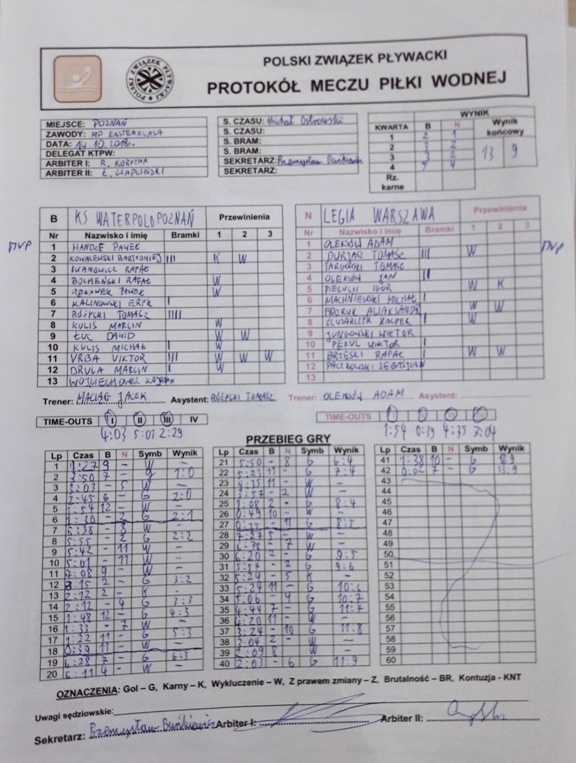 POLSKI ZWIĄZEK PŁYWACKI
PROTOKÓŁ MECZU PIŁKI WODNEJ
MIEJSCE: POZNAŃ
ZAWODY: MP EKSTRAKLASA
DATA:
DELEGAT KTPW:
ARBITER I: R. KORYZNA
ARBITER II: Ł. CZAPLIŃSKI
S. CZASU: Michał Ostrowski
S. CZASU:
S. BRAM:
S. BRAM:
SEKRETARZ: Przemysław
SEKRETARZ:
WYNIK
KWARTA B N Wynik końcowy
1 2 1
2 3 2
3 3 2
4 5 4
13 9
Rz. karne
B KS WATERPOLO POZNAŃ Przewinienia
Nr Nazwisko i imię Bramki 1 2 3
1 HANDKE PAWEŁ
MVP 2 KOWALEWSKI BARTŁOMIEJ IIII K W
3 IWANOWICZ RAFAŁ
4 BOCHEŃSKI RAFAŁ W
5 PAWEŁ W
6 KALINOWSKI ERYK I
7 RÓŻYCKI TOMASZ IIII
8 KULIS MARCIN W
9 ŁUC DAWID W W
10 KULIS MICHAŁ I W
11 VRBA VIKTOR III W W W
12 DRULA MARCIN I W
13 WOJCIECHOWSKI
Trener: MACIĄG JACEK Asystent: RÓŻYCKI TOMASZ
N LEGIA WARSZAWA Przewinienia
Nr Nazwisko i imię Bramki 1 2 3
1 OLEKSÓW ADAM
2 DURJASZ TOMASZ III W
3 TOMASZ
4 OLEKSÓW JAN II
5 PIECUCH IGOR W K
6 MACHNIEWSKI MICHAŁ I
7 ALIAKSANDR W W MVP
8 KACPER I W
9 WIKTOR
10 WIKTOR I
11 BRZESKI RAFAŁ I W W
12 SEBASTIAN
13
Trener: OLEKSÓW ADAM Asystent:
TIME-OUTS I II III IV
4:03 5:07 2:29
TIME-OUTS
1:54 0:19 4:35 3:04
PRZEBIEG GRY
Lp Czas B N Symb Wynik
1 9 - W
2 7 - G 1:0
3 - 5 W
4 2:45 6 - G 2:0
5 1:54 12 - W
6 G 2:1
7 W
8 5:55 - 2 G 2:2
9 5:42 - 11 W
10 5:01 - 11 W
11 9 - W
12 3:15 2 - G 3:2
13 2:12 2 - K
14 2:12 - 4 G 3:3
15 1:48 12 - G 4:3
16 - 7 W
17 1:22 11 - G 5:3
18 0:39 11 - W
19 6:28 7 - G 6:3
20 6:11 4 - W
Lp Czas B N Symb Wynik
21 5:50 - 8 G 6:4
22 11 - G 7:4
23 11 - W
24 - 2 W
25 2 - G 8:4
26 0:49 10 - W
27 - 11 G 8:5
28 5 - W
29 - 7 W
30 6:20 2 - G 9:5
31 - 2 G 9:6
32 5:24 - 5 K
33 5:24 11 - G 10:6
34 5:06 - 4 G 10:7
35 4:44 7 - G 11:7
36 11 - W
37 3:24 - 10 G 11:8
38 2 - W
39 2:09 8 - W
40 - 6 G 11:9
Lp Czas B N Symb Wynik
41 1:28 10 - G 12:9
42 7 - G 13:9
43
44
45
46
47
48
49
50
51
52
53
54
55
56
57
58
59
60
OZNACZENIA: Gol – G, Karny – K, Wykluczenie – W, Z prawem zmiany – Z, Brutalność – BR, Kontuzja - KNT
Uwagi sędziowskie:
Sekretarz: Przemysław Arbiter I: Arbiter II: